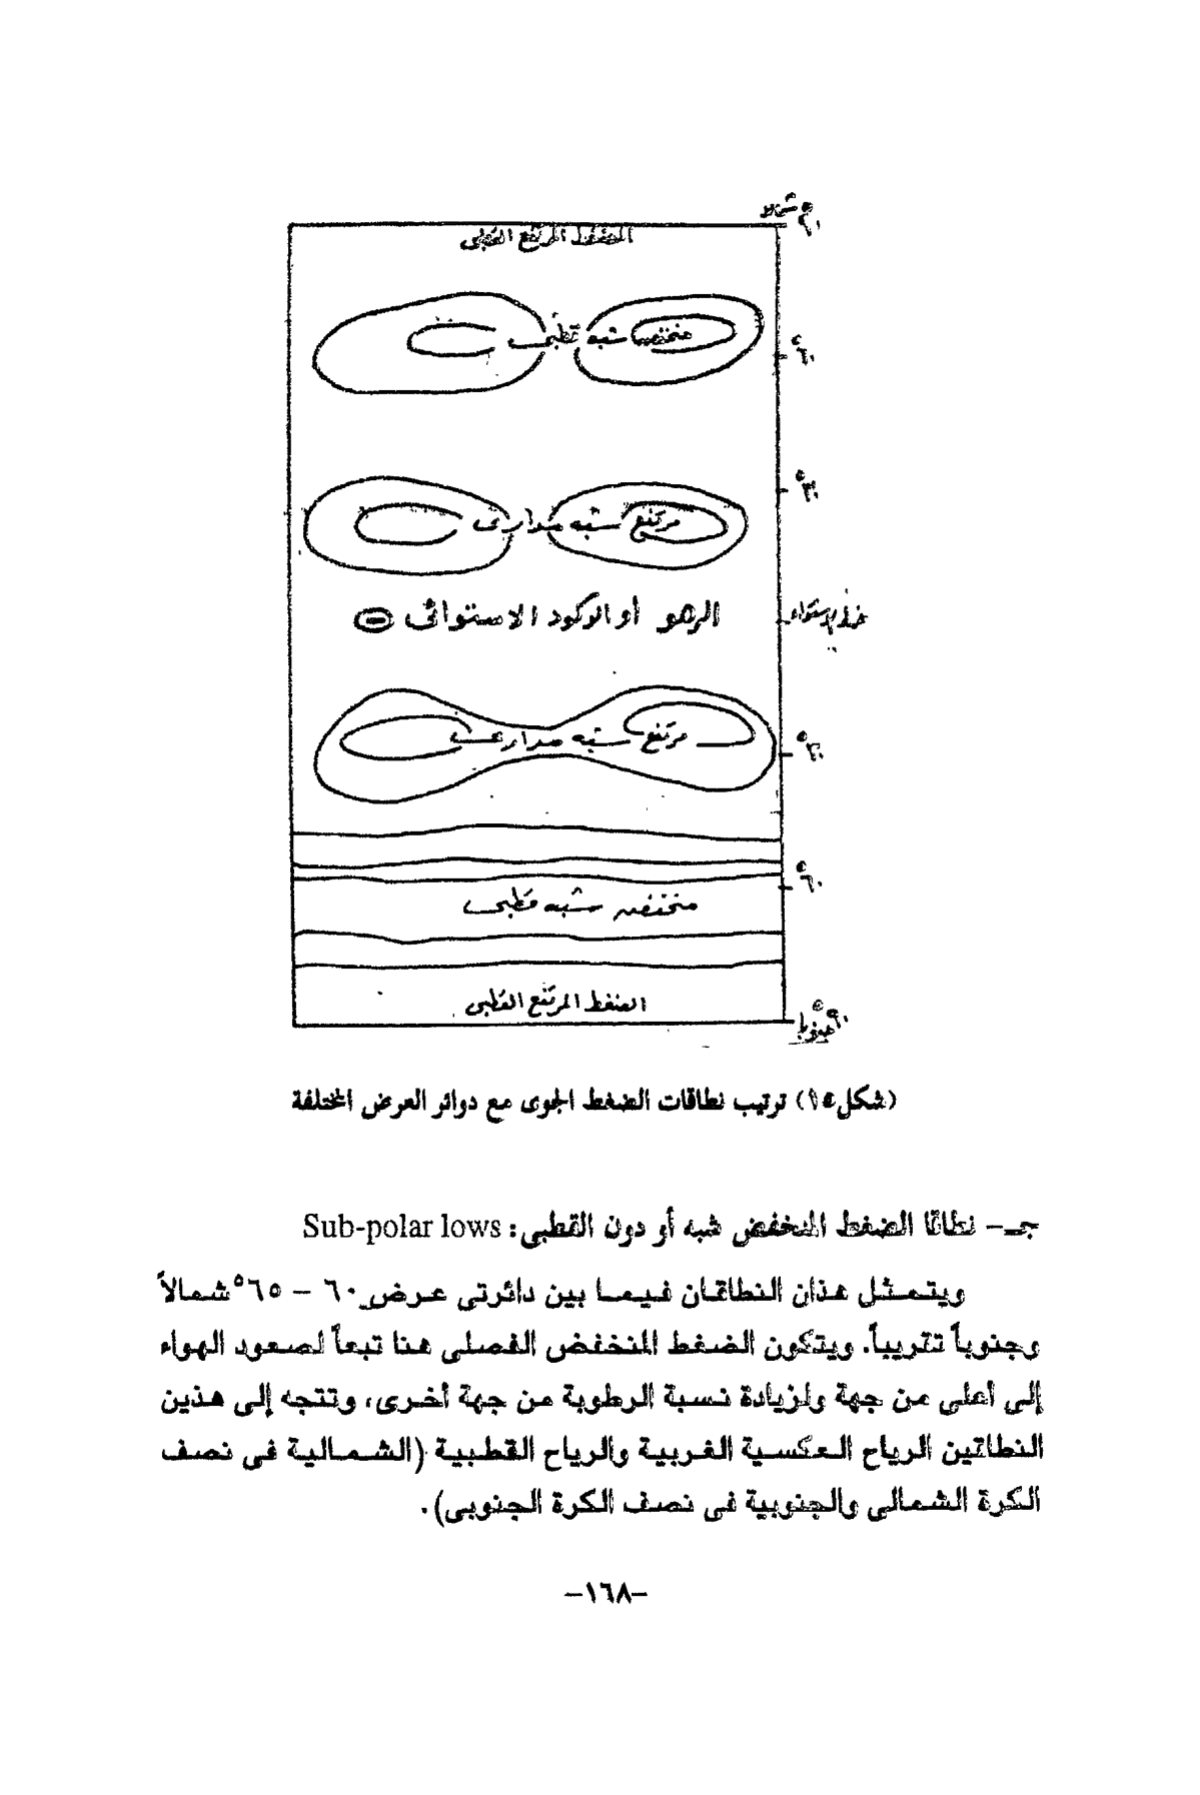 ٩٠° شمالا
الضغط المرتفع القطبى
منخفض شبه قطبى
٦٠°
٣٠°
مرتفع شبه مدارى
الرهو أو الركود الاستوائى
خط الاستواء
مرتفع شبه مدارى
٣٠°
٦٠°
منخفض شبه قطبى
الضغط المرتفع القطبى
٩٠° جنوبا
(شكل١٥) ترتيب نطاقات الضغط الجوى مع دوائر العرض المختلفة
جـ- نطاقا الضغط المنخفض شبه أو دون القطبى: Sub-polar lows
ويتمثل هذان النطاقان فيما بين دائرتى عرض ٦٠ – ٦٥° شمالاً
وجنوباً تقريباً. ويتكون الضغط المنخفض الفصلى هنا تبعاً لصعود الهواء
إلى أعلى من جهة ولزيادة نسبة الرطوبة من جهة أخرى، وتتجه إلى هذين
النطاقين الرياح العكسية الغربية والرياح القطبية (الشمالية فى نصف
الكرة الشمالى والجنوبية فى نصف الكرة الجنوبى).
-١٦٨-